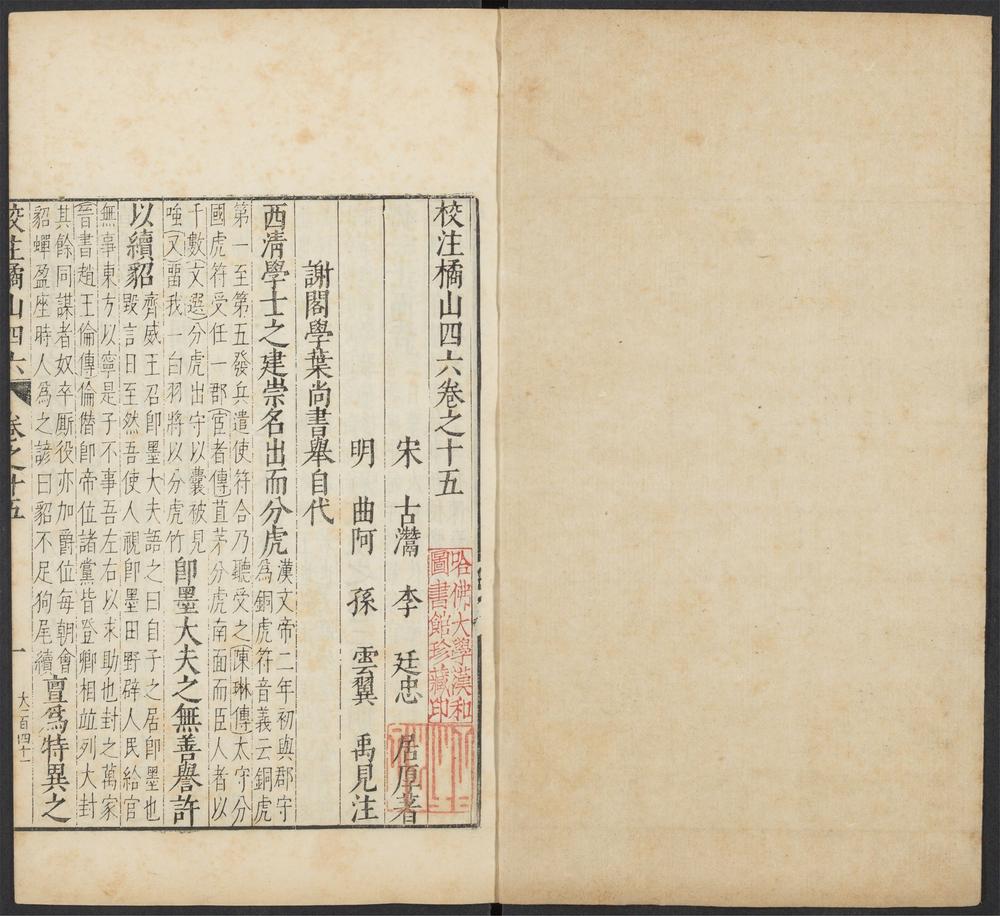 校注橘山四六卷之十五
宋 古灊 李 廷忠 居厚著
明 曲阿 孫 雲翼 禹見注
謝閣學葉尚書舉自代
西清學士之建崇名出而分虎漢文帝二年初與郡守
為銅虎符音義云銅虎
第一至第五發兵遣使符合乃聽受之陳琳傳太守分
國虎符受任一郡宦者傳苴茅分虎南面而臣人者以
十數文選分虎出守以囊被見
嗤又畱我一白羽將以分虎竹即墨大夫之無善譽許
以續貂齊威王召即墨大夫語之曰自子之居即墨也
毀言日至然吾使人視即墨田野辟人民給官
無事東方以寧是子不事吾左右以求助也封之萬家
晉書趙王倫傳倫僭即帝位諸黨皆登卿相竝列大封
其餘同謀者奴卒厮役亦加爵位每朝會
貂蟬盈座時人為之諺曰貂不足狗尾續亶為特異之
校注橘山四六 卷之十五 一 大二百四十一
哈佛大學漢和
圖書館珍藏印